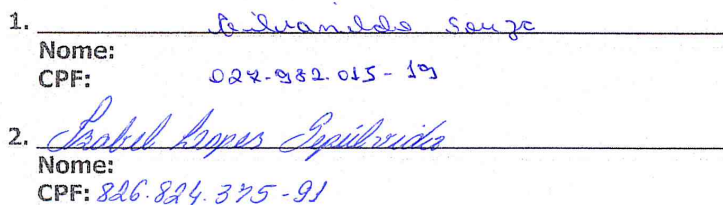 1. Gilvanildo Souza
Nome:
CPF: 027.982.015-19
2. Izabel Lopes Sepúlvida
Nome:
CPF: 826.824.375-91